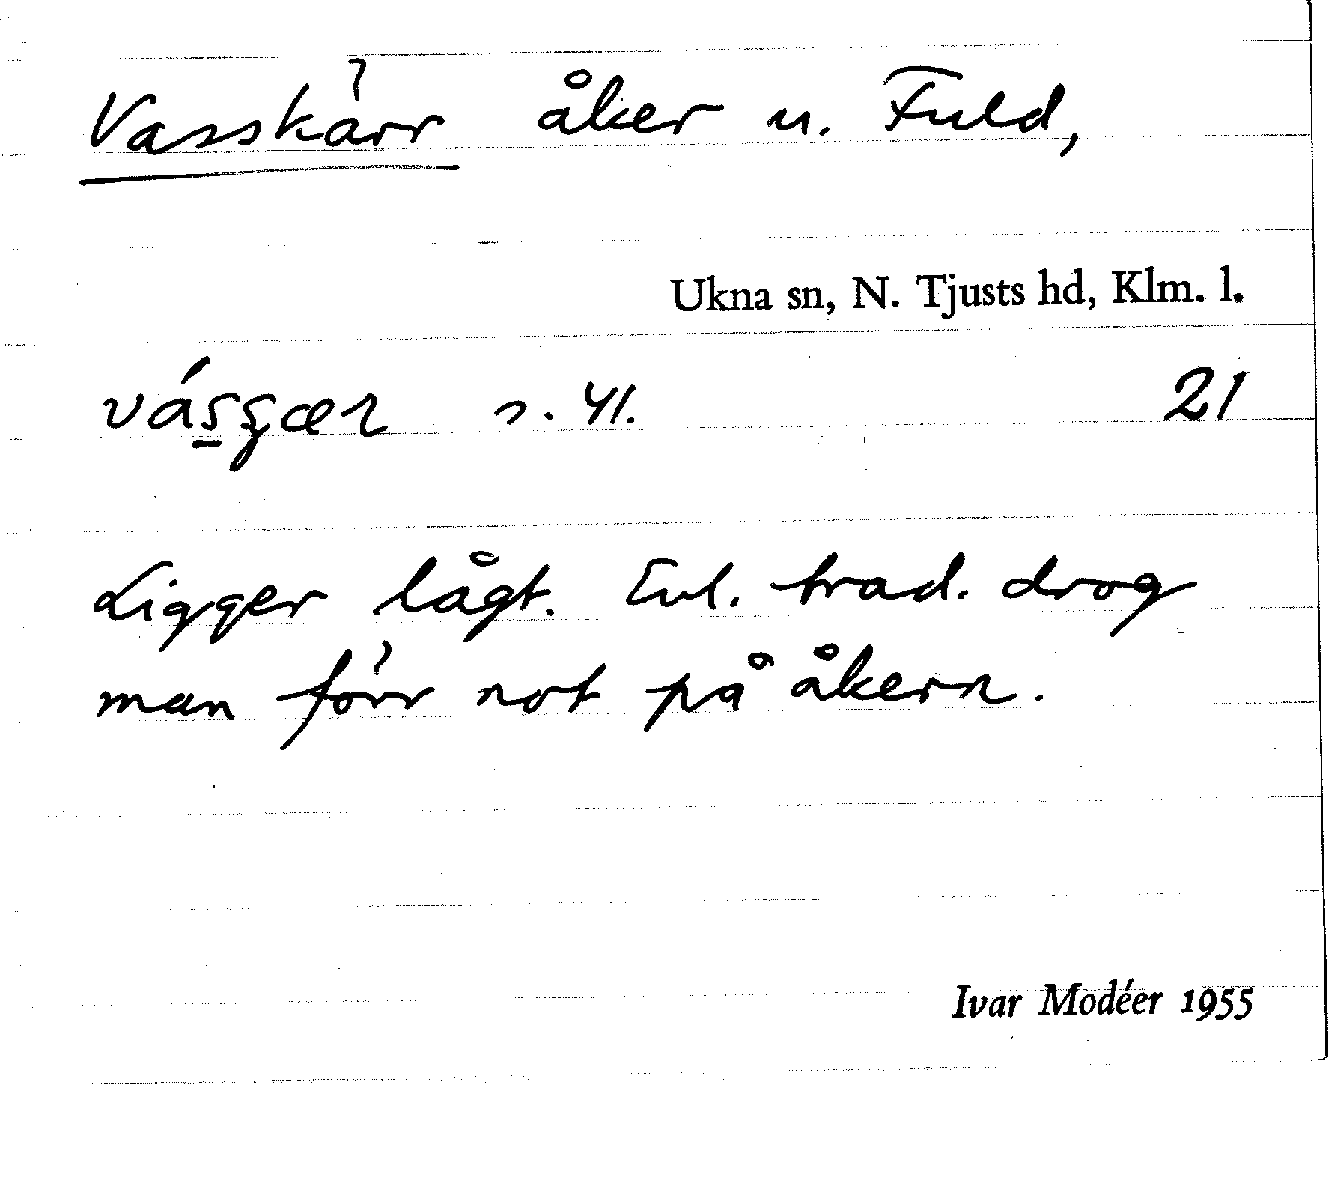 Vasskärr åker u. Fuld,
Ukna sn, N. Tjusts hd, Klm. l.
21
Ligger lågt. Enl. trad. drog
man förr not på åkern.
Ivar Modéer 1955